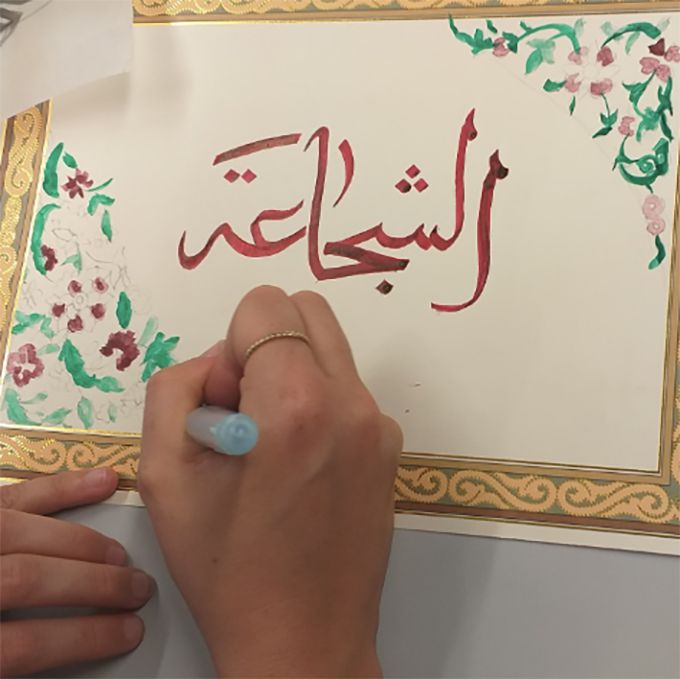 الشجاعة